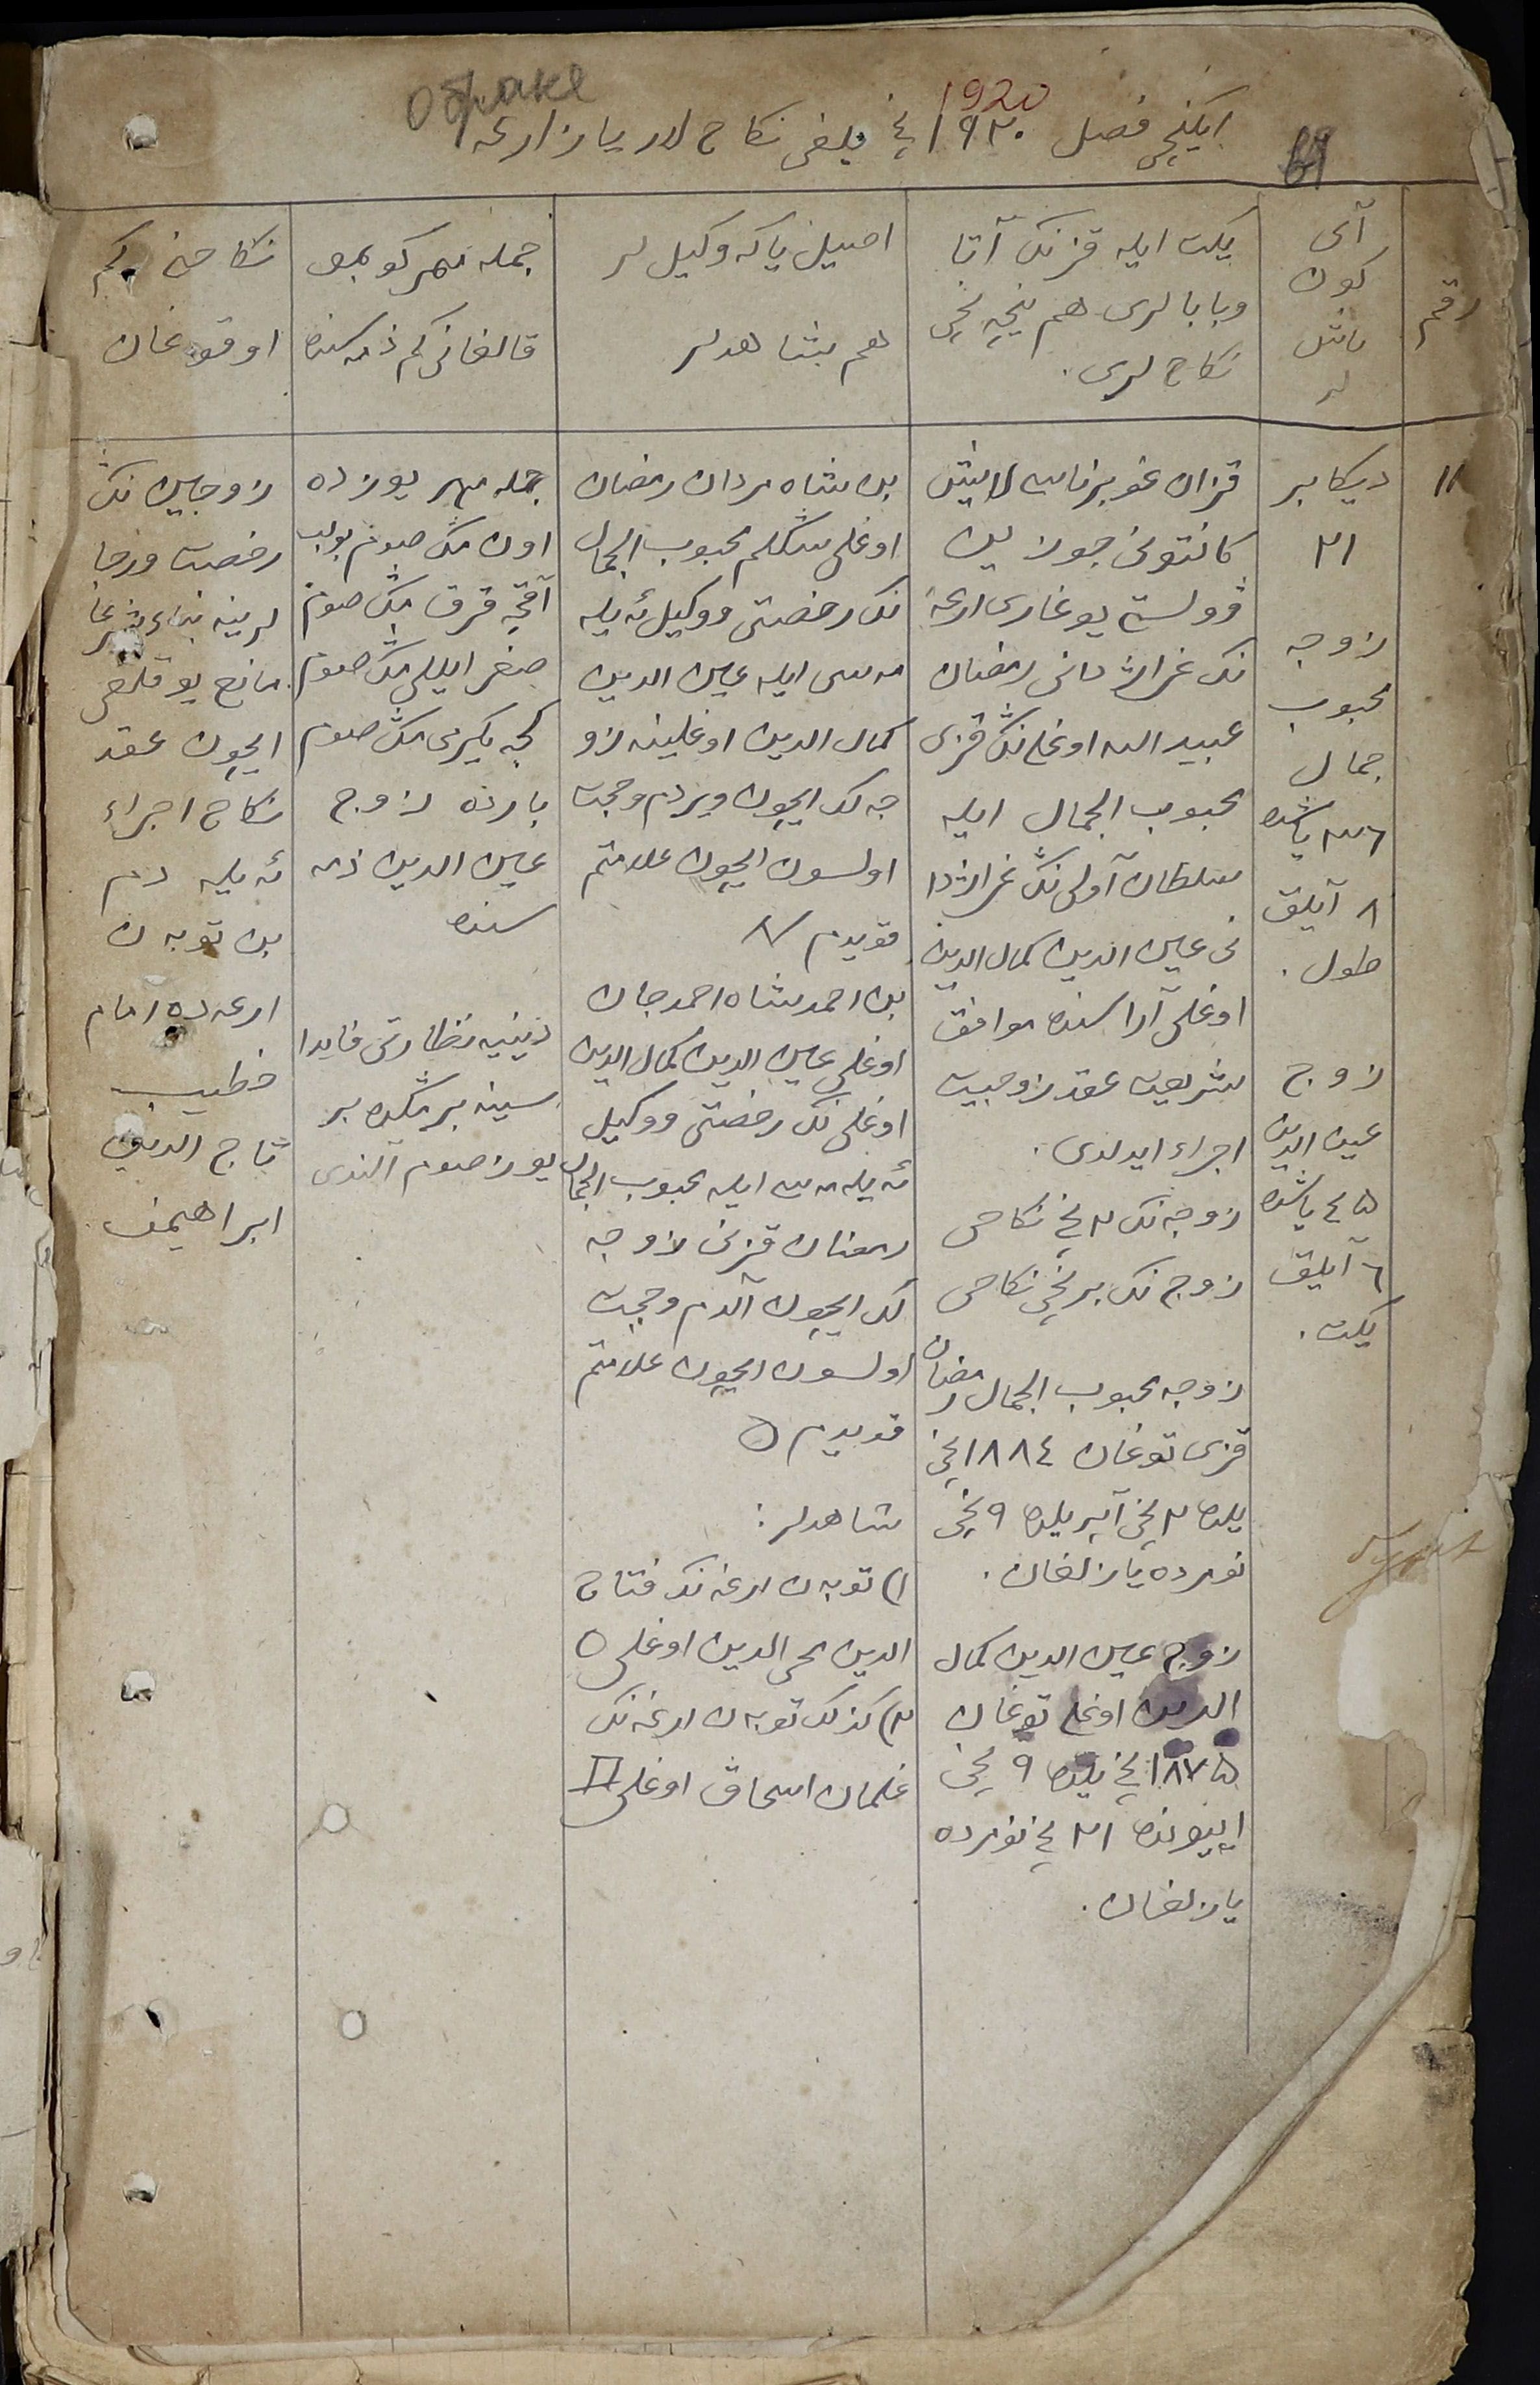 О браке
1920
ایکنچی فصل ۱۹۲۰ نچی یلغی نکاح لار یازارغه
69
رقم
آی
کون
یاش
لر
یکت ایله قزنک آتا
وبابالری هم نیچه نچی
نکاح لری.
اصیل یاکه وکیل لر
هم شاهدلر
جمله مهر کو بمو
قالغانی کم ذمه سنده
نکاحنی کم
اوقوغان
۱۱
دیکابر
۲۱
زوجه
محبوب
جمال
۳۶ یاشده
۸ آیلق
طول.
زوج
عین الدین
۴۵ یاشده
۶ آیلیق
یکت.
قزان غوبرناسی لایش
کانتونی
وولستی یوغاری ارغه
نک غراژدانی رمضان
عبید الله اوغلی ننک قزی
محبوب الجمال ایله
سلطان آولی ننک غراژدا
نی عین الدین کمال الدین
اوغلی آراسنده موافق
شریعت عقد زوجیت
اجراء ایدلدی.
زوجه نک ۲ نچی نکاحی
زوج نک برنچی نکاحی
زوجه محبوب الجمال رمضان
قزی توغان ۱۸۸٤ نچی
یلده ۲ نچی آپریلده ۹ نچی
نومرده یازلغان.
زوج عین الدین کمال
الدین اوغلی توغان
۱۸۷۵ نچی یلده ۹ نچی
اییونده ۲۱ نچی نومرده
یازلغان.
بن شاه مردان رمضان
اوغلی سنکلم محبوب الجمال
نک رخصتی ووکیل ئه یله
مه سی ایله عین الدین
کمال الدین اوغلینه زو
جه لک ایچون ویردم وحجت
اولسون ایچون علامتم
قویدم
بن احمدشاه احمدجان
اوغلی عین الدین کمال الدین
اوغلی نک رخصتی ووکیل
ئه یله مه سی ایله محبوب الجمال
رمضان قزنی زوجه
لک ایچون آلدم وحجت
اولسون ایچون علامتم
قویدم
شاهدلر:
۱) توبه ن ارغه نک فتاح
الدین محی الدین اوغلی
۲) کذلک توبه ن ارغه نک
غلمان اسحاق اوغلی
جمله مهر یوزده
اون مک صوم بولب
آقچه قرق مک صوم
صغر ایللی مک صوم
کجه یکرمی مک صوم
بارده زوج
عین الدین ذمه
سنده
دینیه نظارتی فایدا
سینه بر مکده بر
یوز صوم آلندی
زوجین نک
رخصت ورضا
لرینه بناء شرعا
مانع یوقلغی
ایچون عقد
نکاح اجراء
ئه یله دم
بن توبه ن
ارغه ده امام
خطیب
تاج الدین
ابراهیمف